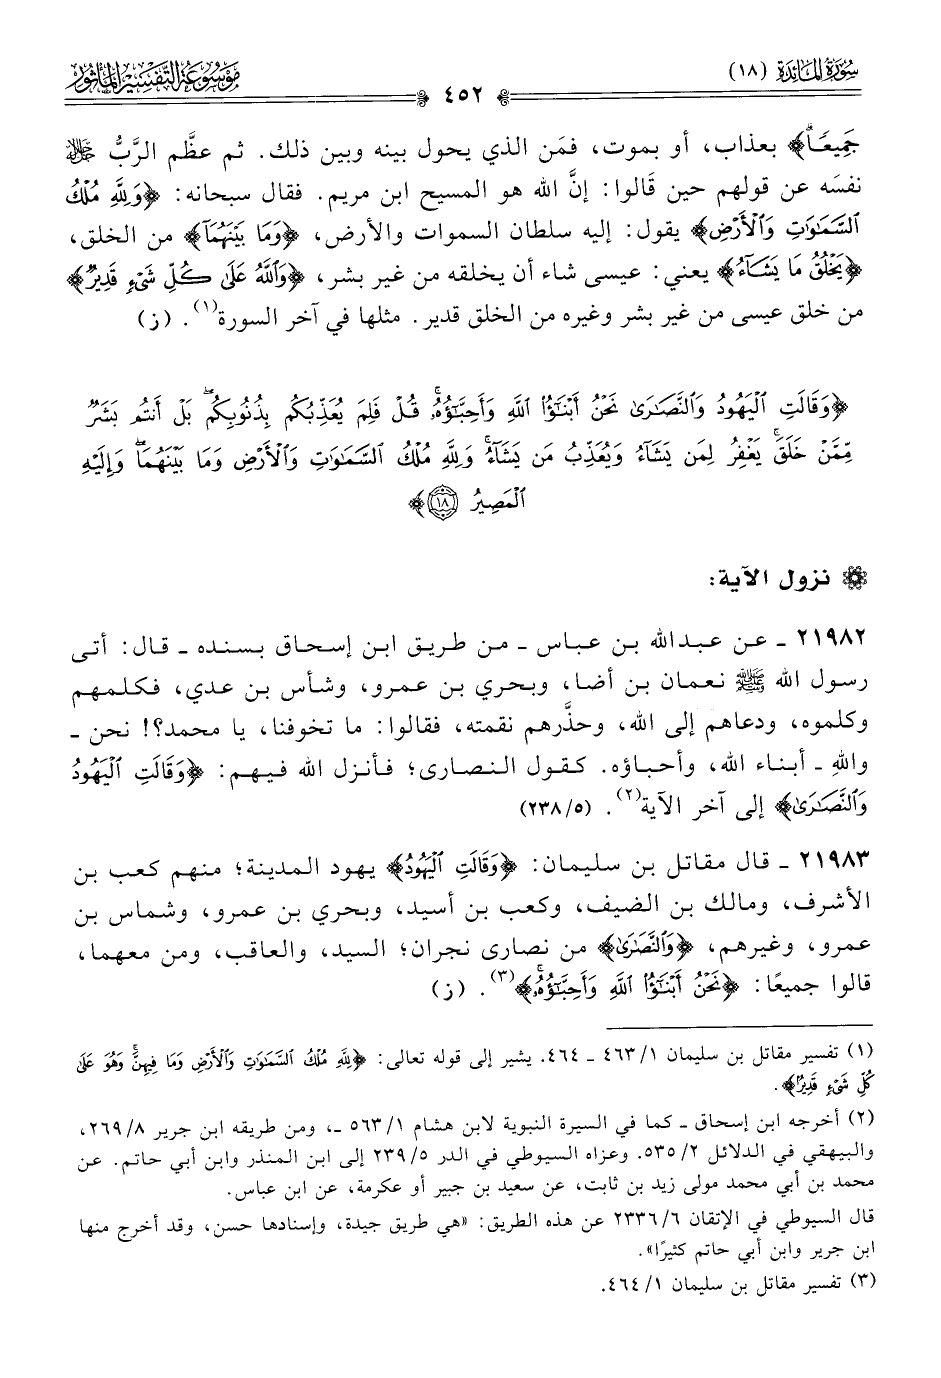 سُورَةُ المَائِدَة (١٨)
٤٥٢
مَوْسُوعَة التَّفْسِير المَأْثُور
جَمِيعًاۗ﴾ بعذاب، أو بموت، فمَن الذي يحول بينه وبين ذلك. ثم عظَّم الرَّبُّ ﷻ
نفسَه عن قولهم حين قَالوا: إنَّ الله هو المسيح ابن مريم. فقال سبحانه: ﴿وَلِلَّهِ مُلْكُ
ٱلسَّمَٰوَٰتِ وَٱلْأَرْضِ﴾ يقول: إليه سلطان السموات والأرض، ﴿وَمَا بَيْنَهُمَآ﴾ من الخلق،
﴿يَخْلُقُ مَا يَشَآءُ﴾ يعني: عيسى شاء أن يخلقه من غير بشر، ﴿وَٱللَّهُ عَلَىٰ كُلِّ شَىْءٍ قَدِيرٌ﴾
من خلق عيسى من غير بشر وغيره من الخلق قدير. مثلها في آخر السورة(١). (ز)
﴿وَقَالَتِ ٱلْيَهُودُ وَٱلنَّصَٰرَىٰ نَحْنُ أَبْنَٰٓؤُا۟ ٱللَّهِ وَأَحِبَّٰٓؤُهُۥۚ قُلْ فَلِمَ يُعَذِّبُكُم بِذُنُوبِكُمۖ بَلْ أَنتُم بَشَرٌ
مِّمَّنْ خَلَقَۚ يَغْفِرُ لِمَن يَشَآءُ وَيُعَذِّبُ مَن يَشَآءُۚ وَلِلَّهِ مُلْكُ ٱلسَّمَٰوَٰتِ وَٱلْأَرْضِ وَمَا بَيْنَهُمَاۖ وَإِلَيْهِ
ٱلْمَصِيرُ ١٨﴾
نزول الآية:
٢١٩٨٢ - عن عبدالله بن عباس - من طريق ابن إسحاق بسنده - قال: أتى
رسول الله ﷺ نعمان بن أضا، وبحري بن عمرو، وشأس بن عدي، فكلمهم
وكلموه، ودعاهم إلى الله، وحذَّرهم نقمته، فقالوا: ما تخوفنا، يا محمد؟! نحن -
واللهِ - أبناء الله، وأحباؤه. كقول النصارى؛ فأنزل الله فيهم: ﴿وَقَالَتِ ٱلْيَهُودُ
وَٱلنَّصَٰرَىٰ﴾ إلى آخر الآية(٢). (٥/٢٣٨)
٢١٩٨٣ - قال مقاتل بن سليمان: ﴿وَقَالَتِ ٱلْيَهُودُ﴾ يهود المدينة؛ منهم كعب بن
الأشرف، ومالك بن الضيف، وكعب بن أسيد، وبحري بن عمرو، وشماس بن
عمرو، وغيرهم، ﴿وَٱلنَّصَٰرَىٰ﴾ من نصارى نجران؛ السيد، والعاقب، ومن معهما،
قالوا جميعًا: ﴿نَحْنُ أَبْنَٰٓؤُا۟ ٱللَّهِ وَأَحِبَّٰٓؤُهُۥۚ﴾(٣). (ز)
(١) تفسير مقاتل بن سليمان ١/ ٤٦٣ - ٤٦٤. يشير إلى قوله تعالى: ﴿لِلَّهِ مُلْكُ ٱلسَّمَٰوَٰتِ وَٱلْأَرْضِ وَمَا فِيهِنَّۚ وَهُوَ عَلَىٰ
كُلِّ شَىْءٍ قَدِيرٌۢ﴾.
(٢) أخرجه ابن إسحاق - كما في السيرة النبوية لابن هشام ١/ ٥٦٣ -، ومن طريقه ابن جرير ٨/ ٢٦٩،
والبيهقي في الدلائل ٢/ ٥٣٥. وعزاه السيوطي في الدر ٥/ ٢٣٩ إلى ابن المنذر وابن أبي حاتم. عن
محمد بن أبي محمد مولى زيد بن ثابت، عن سعيد بن جبير أو عكرمة، عن ابن عباس.
قال السيوطي في الإتقان ٦/ ٢٣٣٦ عن هذه الطريق: «هي طريق جيدة، وإسنادها حسن، وقد أخرج منها
ابن جرير وابن أبي حاتم كثيرًا».
(٣) تفسير مقاتل بن سليمان ١/ ٤٦٤.